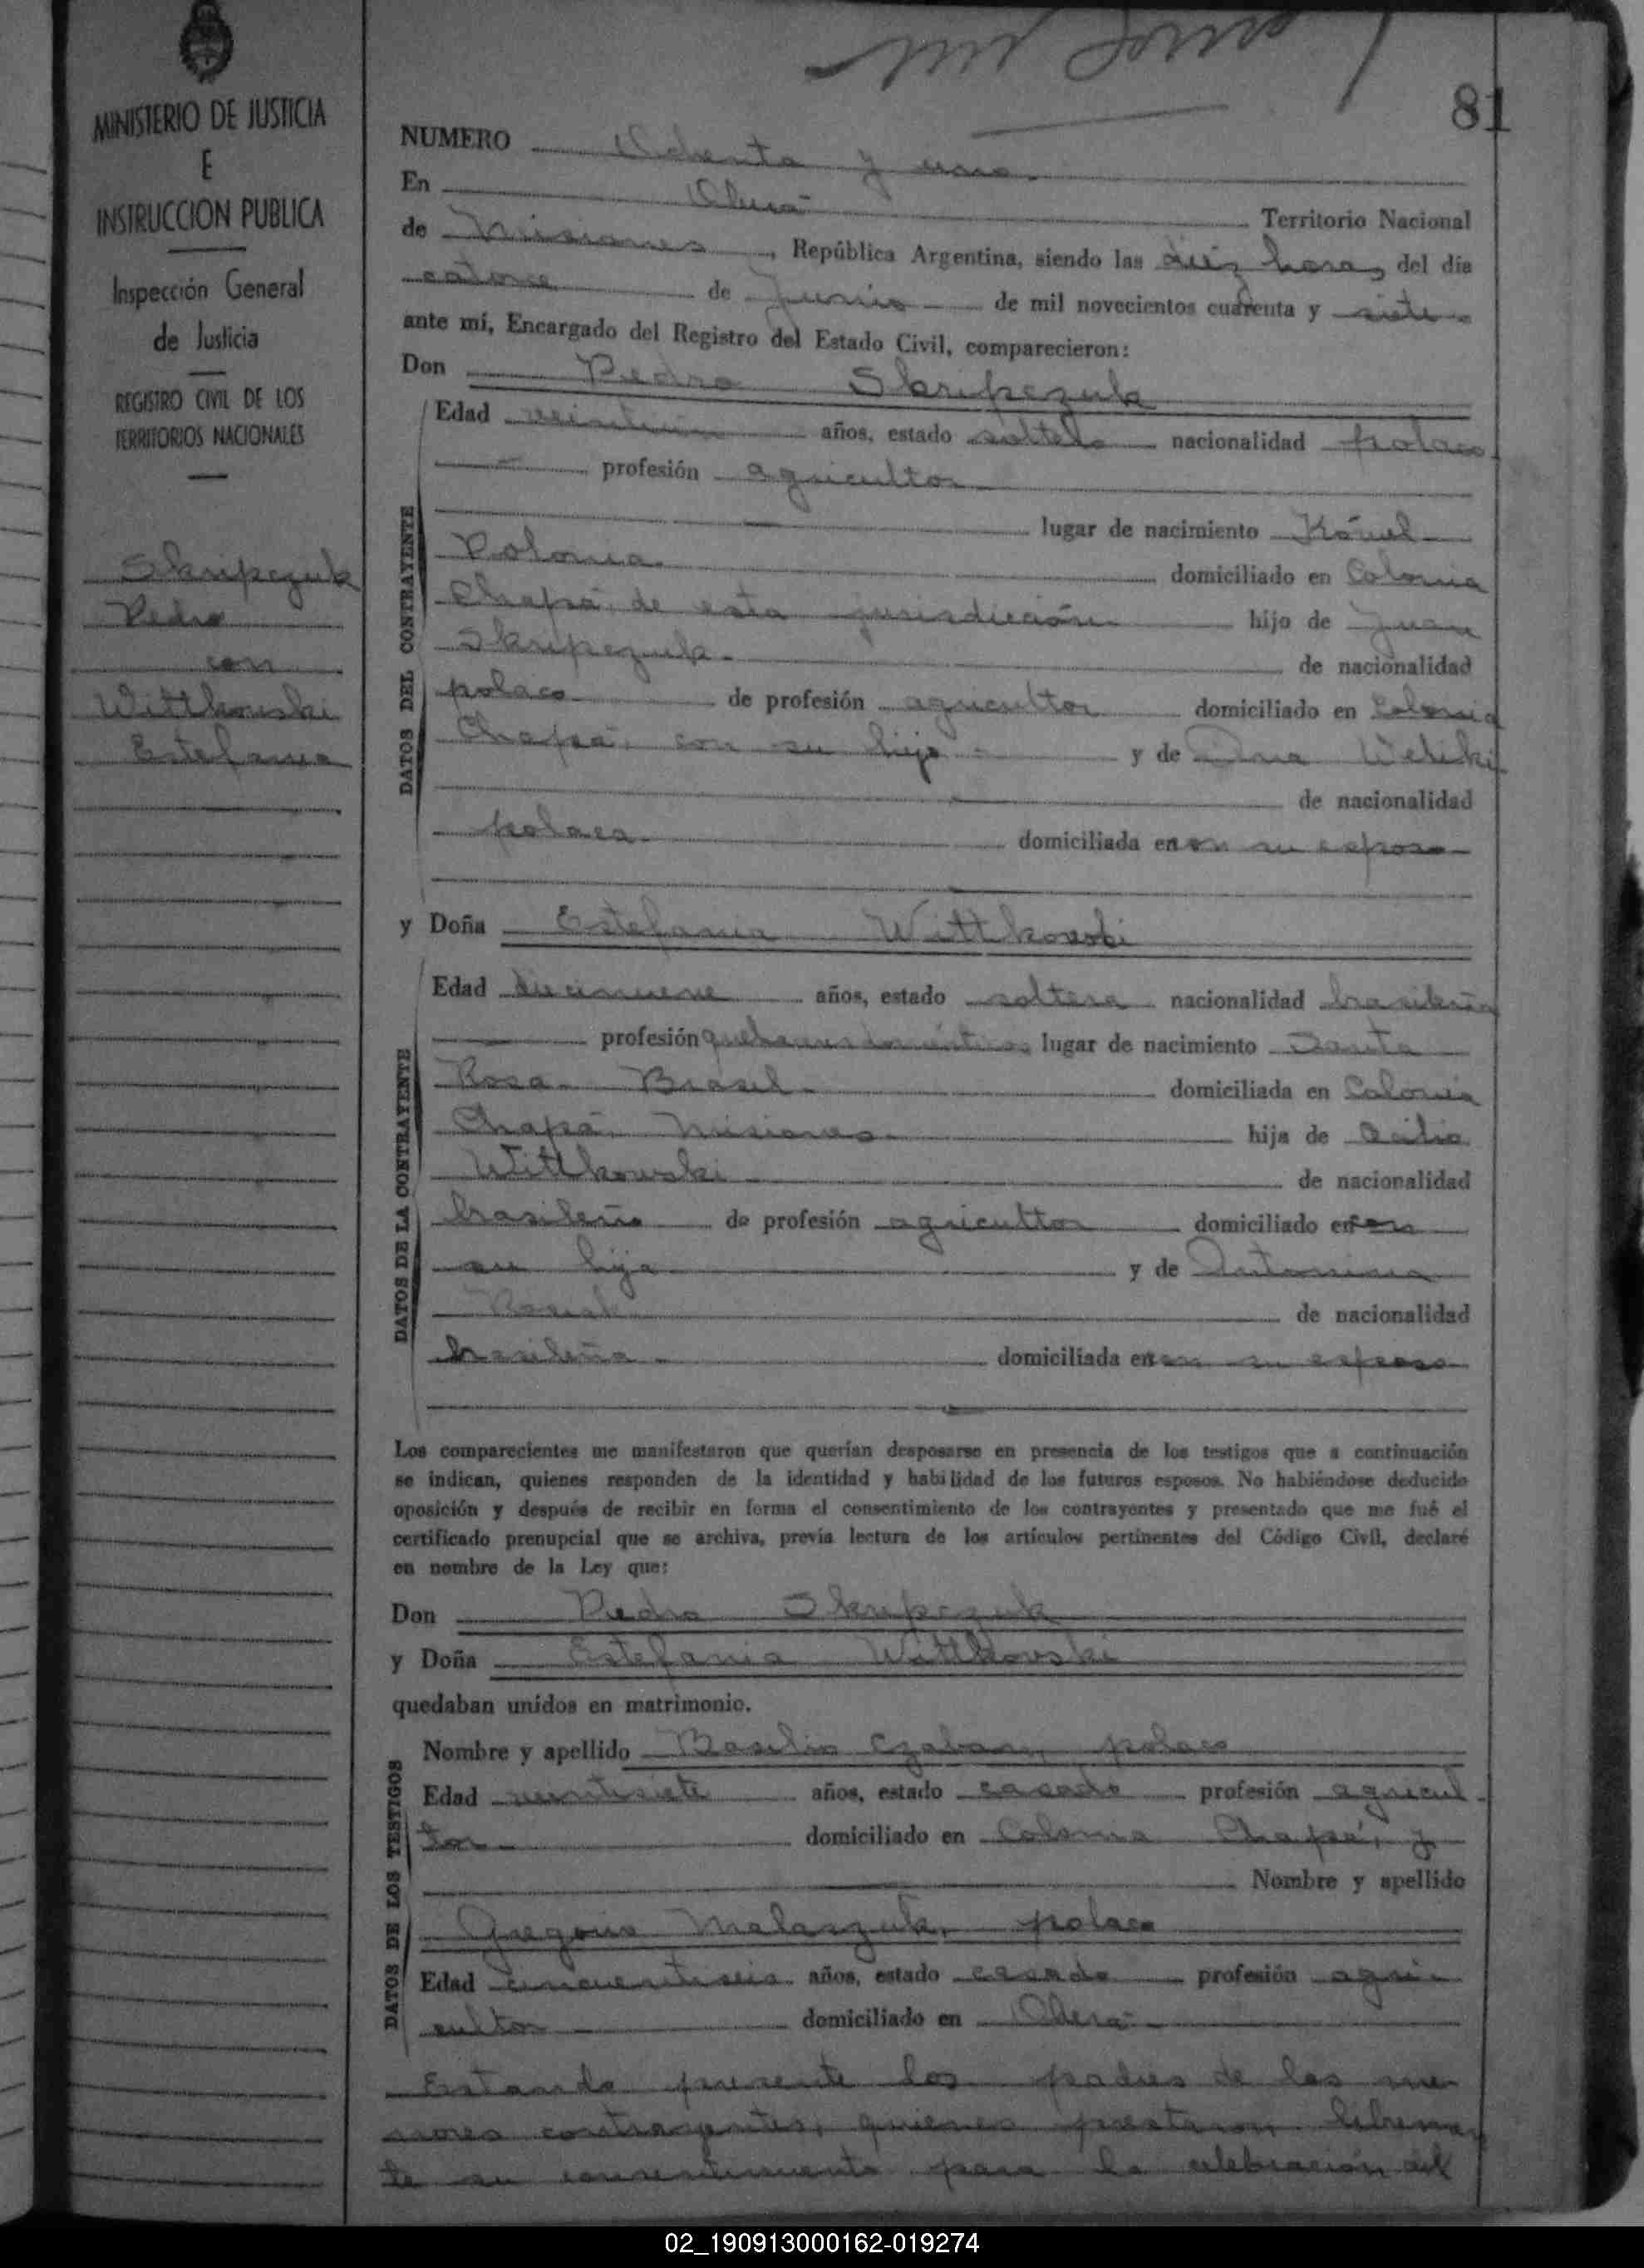 81
MINISTERIO DE JUSTICIA
E
INSTRUCCION PUBLICA
Inspección General
de Justicia
REGISTRO CIVIL DE LOS
TERRITORIOS NACIONALES
Skripczuk
Pedro
con
Wittkowski
Estefania
NUMERO Ochenta y uno.
En Oberá Territorio Nacional
de Misiones, República Argentina, siendo las diez horas del día
catorce de Junio de mil novecientos cuarenta y siete
ante mí, Encargado del Registro del Estado Civil, comparecieron:
Don Pedro Skripczuk
DATOS DEL CONTRAYENTE
Edad veintiún años, estado soltero nacionalidad polaco
profesión agricultor
lugar de nacimiento Kówel
Polonia. domiciliado en Colonia
Chapá, de esta jurisdicción hijo de Juan
Skripczuk. de nacionalidad
polaco de profesión agricultor domiciliado en Colonia
Chapá, con su hijo y de Ana
de nacionalidad
polaca domiciliada en con su esposo
y Doña Estefania Wittkowski
DATOS DE LA CONTRAYENTE
Edad diecinueve años, estado soltera nacionalidad brasileña
profesión quehaceres domésticos lugar de nacimiento Santa
Rosa. Brasil. domiciliada en Colonia
Chapá. Misiones. hija de
Wittkowski de nacionalidad
brasileño de profesión agricultor domiciliado en con
su hija y de Antonina
de nacionalidad
brasileña domiciliada en con su esposo
Los comparecientes me manifestaron que querían desposarse en presencia de los testigos que a continuación
se indican, quienes responden de la identidad y habilidad de los futuros esposos. No habiéndose deducido
oposición y después de recibir en forma el consentimiento de los contrayentes y presentado que me fué el
certificado prenupcial que se archiva, previa lectura de los artículos pertinentes del Código Civil, declaré
en nombre de la Ley que:
Don Pedro Skripczuk
y Doña Estefania Wittkowski
quedaban unidos en matrimonio.
DATOS DE LOS TESTIGOS
Nombre y apellido Basilio Czaban, polaco
Edad veintisiete años, estado casado profesión agricul-
tor domiciliado en Colonia Chapá, y
Nombre y apellido
Gregorio Melaszuk, polaco
Edad cincuentiseis años, estado casado profesión agri-
cultor domiciliado en Oberá
Estando presente los padres de los me-
nores contrayentes, quienes prestaron libremen
te su consentimiento para la celebración del
02_190913000162-019274